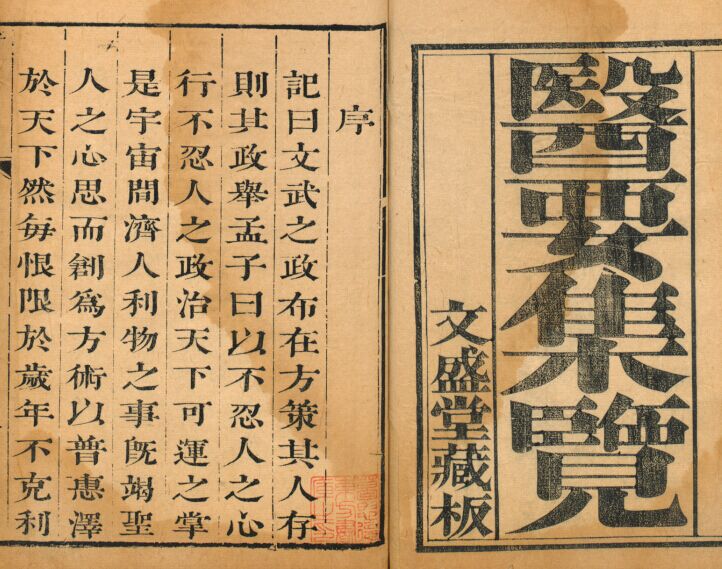 醫要集覽
文盛堂藏板
序
記曰文武之政布在方策其人存
則其政舉孟子曰以不忍人之心
行不忍人之政治天下可運之掌
是宇宙間濟人利物之事旣竭聖
人之心思而創爲方術以普惠澤
於天下然每恨限於歲年不克利